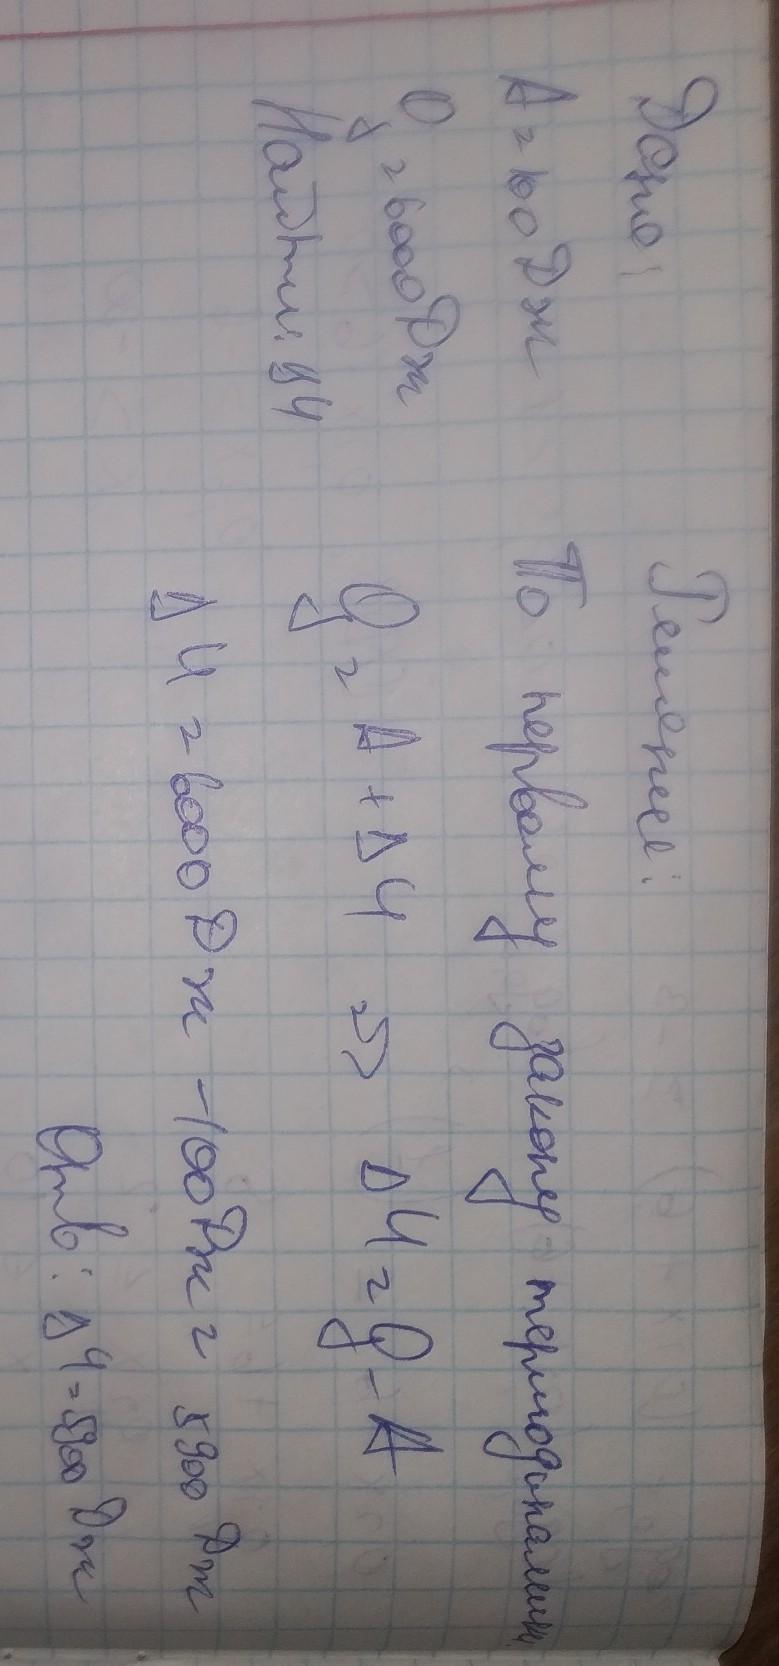 Дано:
A = 100 Дж
Q = 6000 Дж
Найти: ΔU
Решение:
По первому закону термодинамики
Q = A + ΔU => ΔU = Q - A
ΔU = 6000 Дж - 100 Дж = 5900 Дж
Отв: ΔU = 5900 Дж